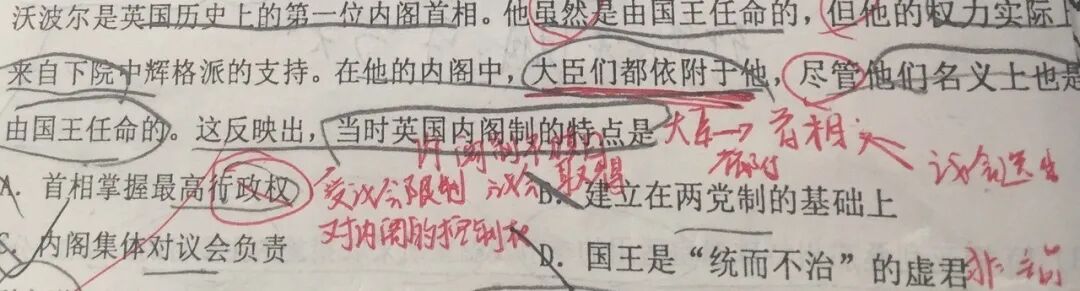 沃波尔是英国历史上的第一位内阁首相。他虽然是由国王任命的，但他的权力实际上
来自下院中辉格派的支持。在他的内阁中，大臣们都依附于他，尽管他们名义上也是
由国王任命的。这反映出，当时英国内阁制的特点是
大臣→首相
依附
议会选生
A．首相掌握最高行政权
受议会限制
议会
取得
B．建立在两党制的基础上
对内阁的控制权
C．内阁集体对议会负责
D．国王是“统而不治”的虚君